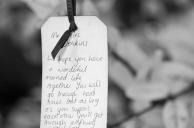 I hope you have
a wonderful
married life
together. You will
go through hard
times but as long
as you support
each other you'll get
through anything